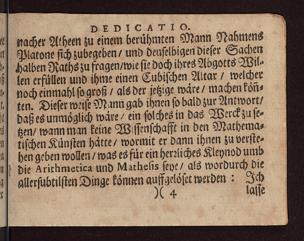 DEDICATIO.
nacher Atheen zu einem berühmten Mann Nahmens
Platone sich zubegeben / und denselbigen dieser Sachen
halben Raths zu fragen / wie sie doch ihres Abgotts Wil-
len erfüllen und ihme einen Cubischen Altar / welcher
noch einmahl so groß / als der jetzige wäre / machen kön-
ten. Dieser weise Mann gab ihnen so bald zur Antwort /
daß es unmöglich wäre / ein solches in das Werck zu se-
tzen / wann man keine Wissenschafft in den Mathema-
tischen Künsten hätte / wormit er dann ihnen zu verste-
hen geben wollen / was es für ein herrliches Kleynod umb
die Arithmetica und Mathesis seye / als wordurch die
allersubtilsten Dinge können auffgelöset werden : Ich
)( 4 lasse